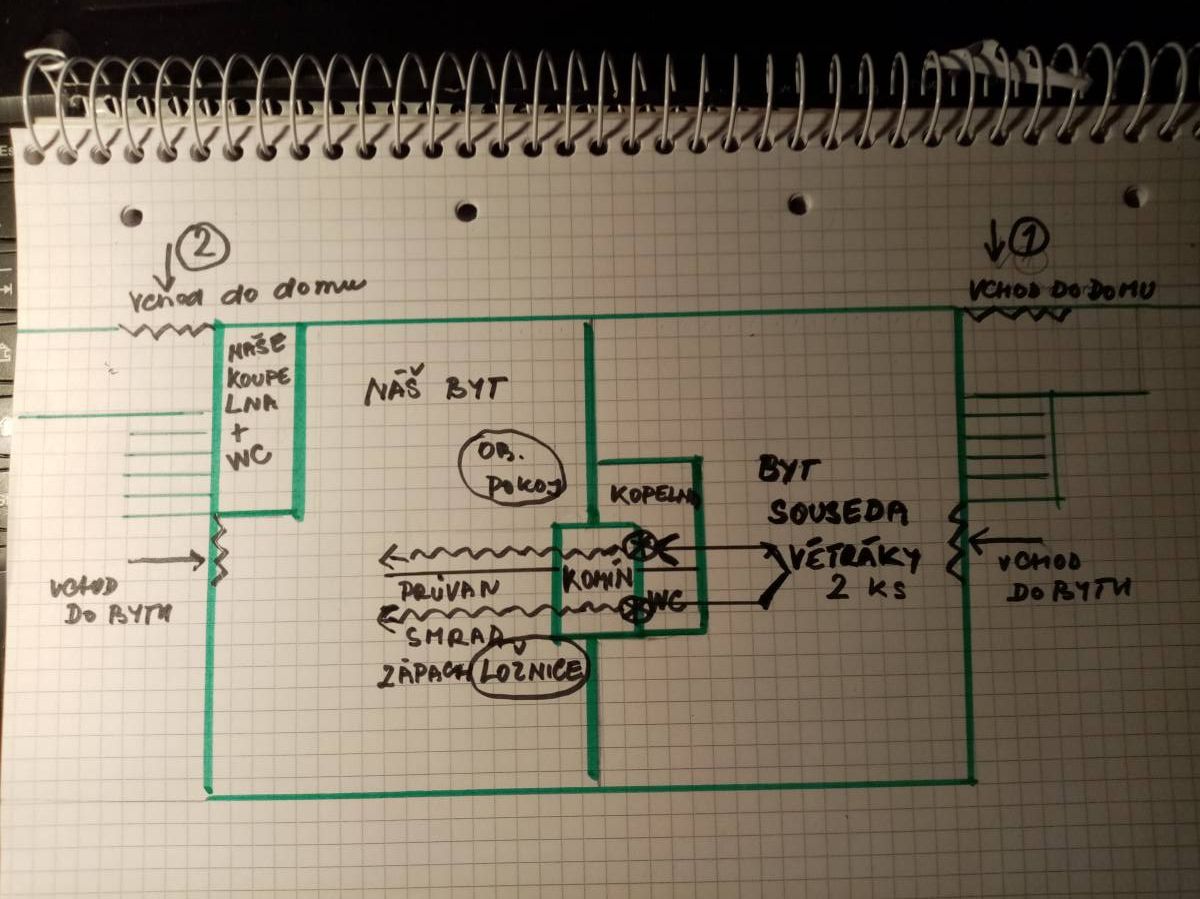 2
Vchod do domu
1
VCHOD DO DOMU
NAŠE
KOUPE
LNA
+
WC
NÁŠ BYT
OB.
POKOJ
KOPELNA
BYT
SOUSEDA
VĚTRÁKY
2 KS
KOMÍN
WC
PRŮVAN
SMRAD
ZÁPACH
LOŽNICE
VCHOD
DO BYTU
VCHOD
DO BYTU